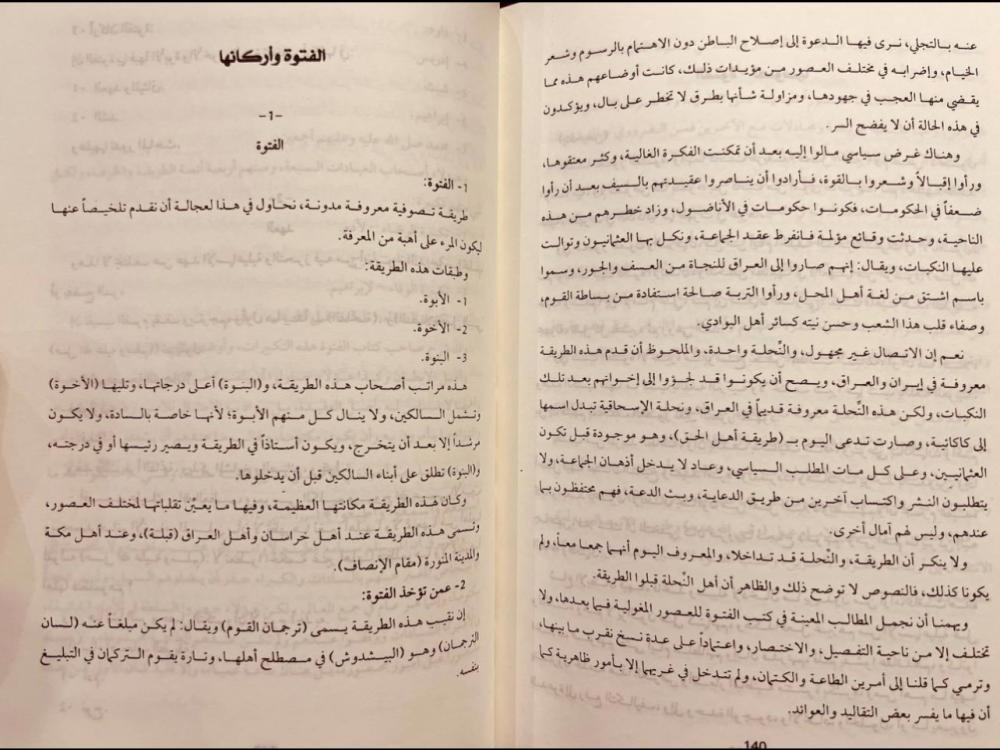 عنه بالتجلي، نرى فيها الدعوة إلى إصلاح الباطن دون الاهتمام بالرسوم وشعر
الخيام، وإضرابه في مختلف العصور من مؤيدات ذلك، كانت أوضاعهم هذه مما
يقضي منها العجب في جهودها، ومزاولة شأنها بطرق لا تخطر على بال، ويؤكدون
في هذه الحالة أن لا يفضح السر.
وهناك غرض سياسي مالوا إليه بعد أن تمكنت الفكرة الغالية، وكثر معتقوها،
ورأوا إقبالاً وشعروا بالقوة، فأرادوا أن يناصروا عقيدتهم بالسيف بعد أن رأوا
ضعفاً في الحكومات، فكونوا حكومات في الأناضول، وزاد خطرهم من هذه
الناحية، وحدثت وقائع مؤلمة فانفرط عقد الجماعة، ونكل بها العثمانيون وتوالت
عليها النكبات، ويقال: إنهم صاروا إلى العراق للنجاة من العسف والجور، وسموا
باسم اشتق من لغة أهل المحل، ورأوا التربة صالحة استفادة من بساطة القوم،
وصفاء قلب هذا الشعب وحسن نيته كسائر أهل البوادي.
نعم إن الاتصال غير مجهول، والنِّحلة واحدة. والملحوظ أن قدم هذه الطريقة
معروفة في إيران والعراق، ويصح أن يكونوا قد لجؤوا إلى إخوانهم بعد تلك
النكبات، ولكن هذه النِّحلة معروفة قديماً في العراق، ونحلة الإسحاقية تبدل اسمها
إلى كاكائية، وصارت تدعى اليوم بـ (طريقة أهل الحق)، وهو موجودة قبل تكون
العثمانيين، وعلى كل مات المطلب السياسي، وعاد لا يدخل أذهان الجماعة، ولا
يتطلبون النشر واكتساب آخرين من طريق الدعاية، وبث الدعة، فهم محتفظون بما
عندهم، وليس لهم آمال أخرى.
ولا ينكر أن الطريقة، والنَّحلة قد تداخلا، والمعروف اليوم أنهما جمعا معاً، ولم
يكونا كذلك، فالنصوص لا توضح ذلك والظاهر أن أهل النِّحلة قبلوا الطريقة.
ويهمنا أن نجمل المطالب المعينة في كتب الفتوة للعصور المغولية فيما بعدها، ولا
تختلف إلا من ناحية التفصيل، والاختصار، واعتماداً على عدة نسخ نقرب ما بينها،
وترمي كما قلنا إلى أمرين الطاعة والكتمان، ولم تتدخل في غريبهما إلا بأمور ظاهرية كما
أن فيها ما يفسر بعض التقاليد والعوائد.
140
الفتوة وأركانها
-1-
الفتوة
1- الفتوة:
طريقة تصوفية معروفة مدونة، نحاول في هذا لعجالة أن نقدم تلخيصاً عنها
ليكون المرء على أهبة من المعرفة.
وطبقات هذه الطريقة:
1- الأبوة.
2- الأخوة.
3- البنوة.
هذه مراتب أصحاب هذه الطريقة، و(البنوة) أعلى درجاتها، وتليها (الأخوة)
وتشمل السالكين، ولا ينال كل منهم الأبوة؛ لأنها خاصة بالسادة، ولا يكون
مرشداً إلا بعد أن يتخرج، ويكون أستاذاً في الطريقة ويصير رئيسها أو في درجته،
و(البنوة) تطلق على أبناء السالكين قبل أن يدخلوها.
وكان لهذه الطريقة مكانتها العظيمة، وفيها ما يعيّن تقلباتها لمختلف العصور،
وتسمى هذه الطريقة عند أهل خراسان وأهل العراق (قبلة)، وعند أهل مكة
والمدينة المنورة (مقام الإنصاف).
2- عمن تؤخذ الفتوة:
إن نقيب هذه الطريقة يسمى (ترجمان القوم) ويقال: لم يكن مبلغاً عنه (لسان
الترجمان) وهو (البيشدوش) في مصطلح أهلها، وتارة يقوم التركمان في التبليغ
بنفسه.